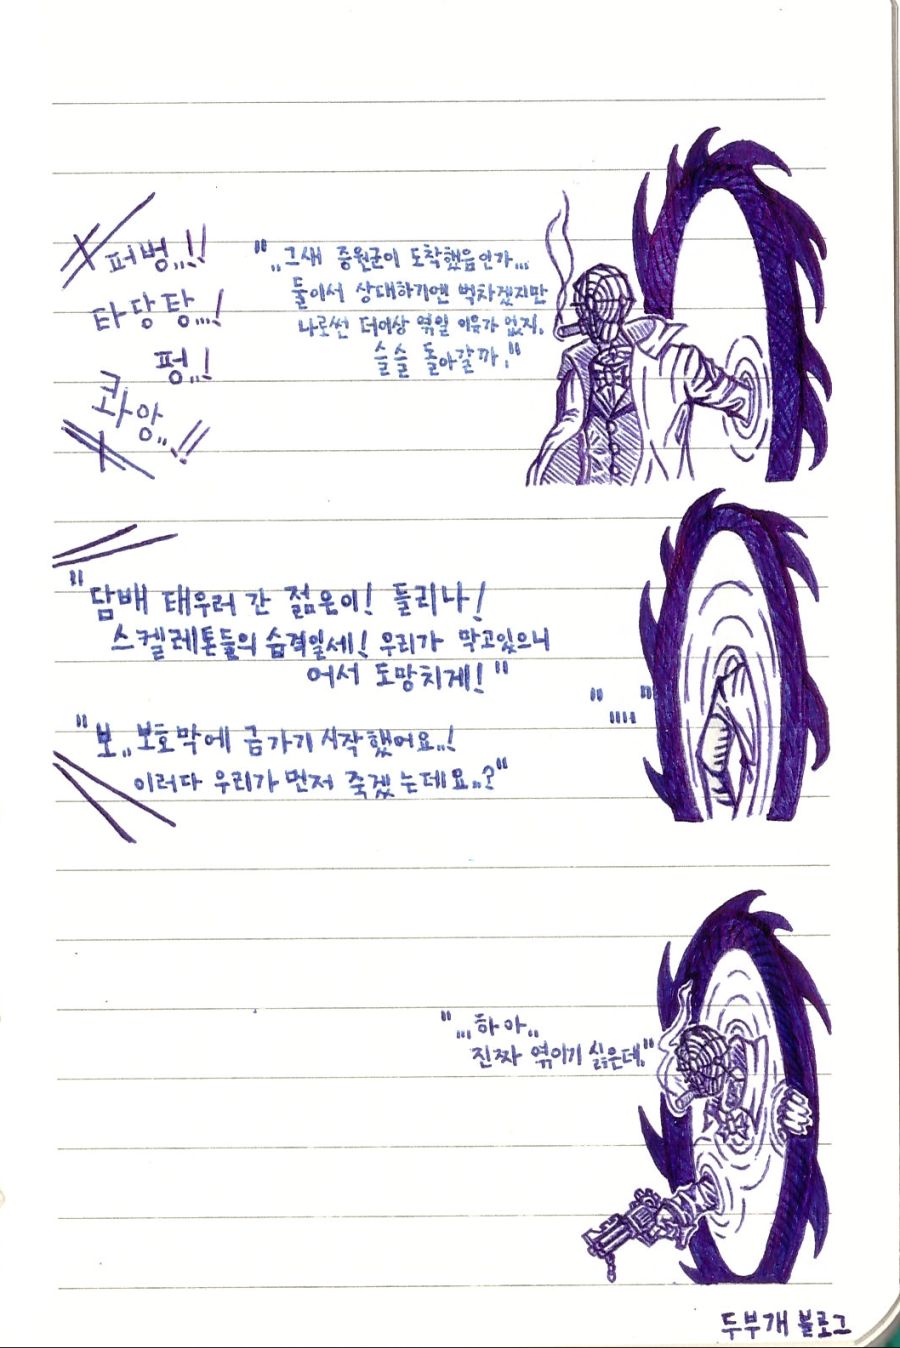 퍼벙..!!
타당탕...!
펑..!
콰앙..!!
"..그새 증원군이 도착했음인가...
둘이서 상대하기엔 벅차겠지만
나로썬 더이상 엮일 이유가 없지.
슬슬 돌아갈까."
"담배 태우러 간 젊은이! 들리나!
스켈레톤들의 습격일세! 우리가 막고있으니
어서 도망치게!"
"...."
"보.. 보호막에 금가기 시작했어요..!
이러다 우리가 먼저 죽겠는데요..?"
"...하아..
진짜 엮이기 싫은데."
두부개 블로그